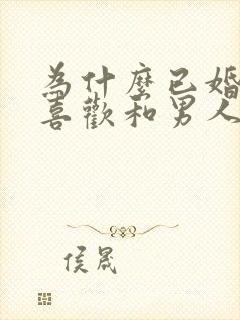 為什麼已婚
喜歡和男人
侯晟